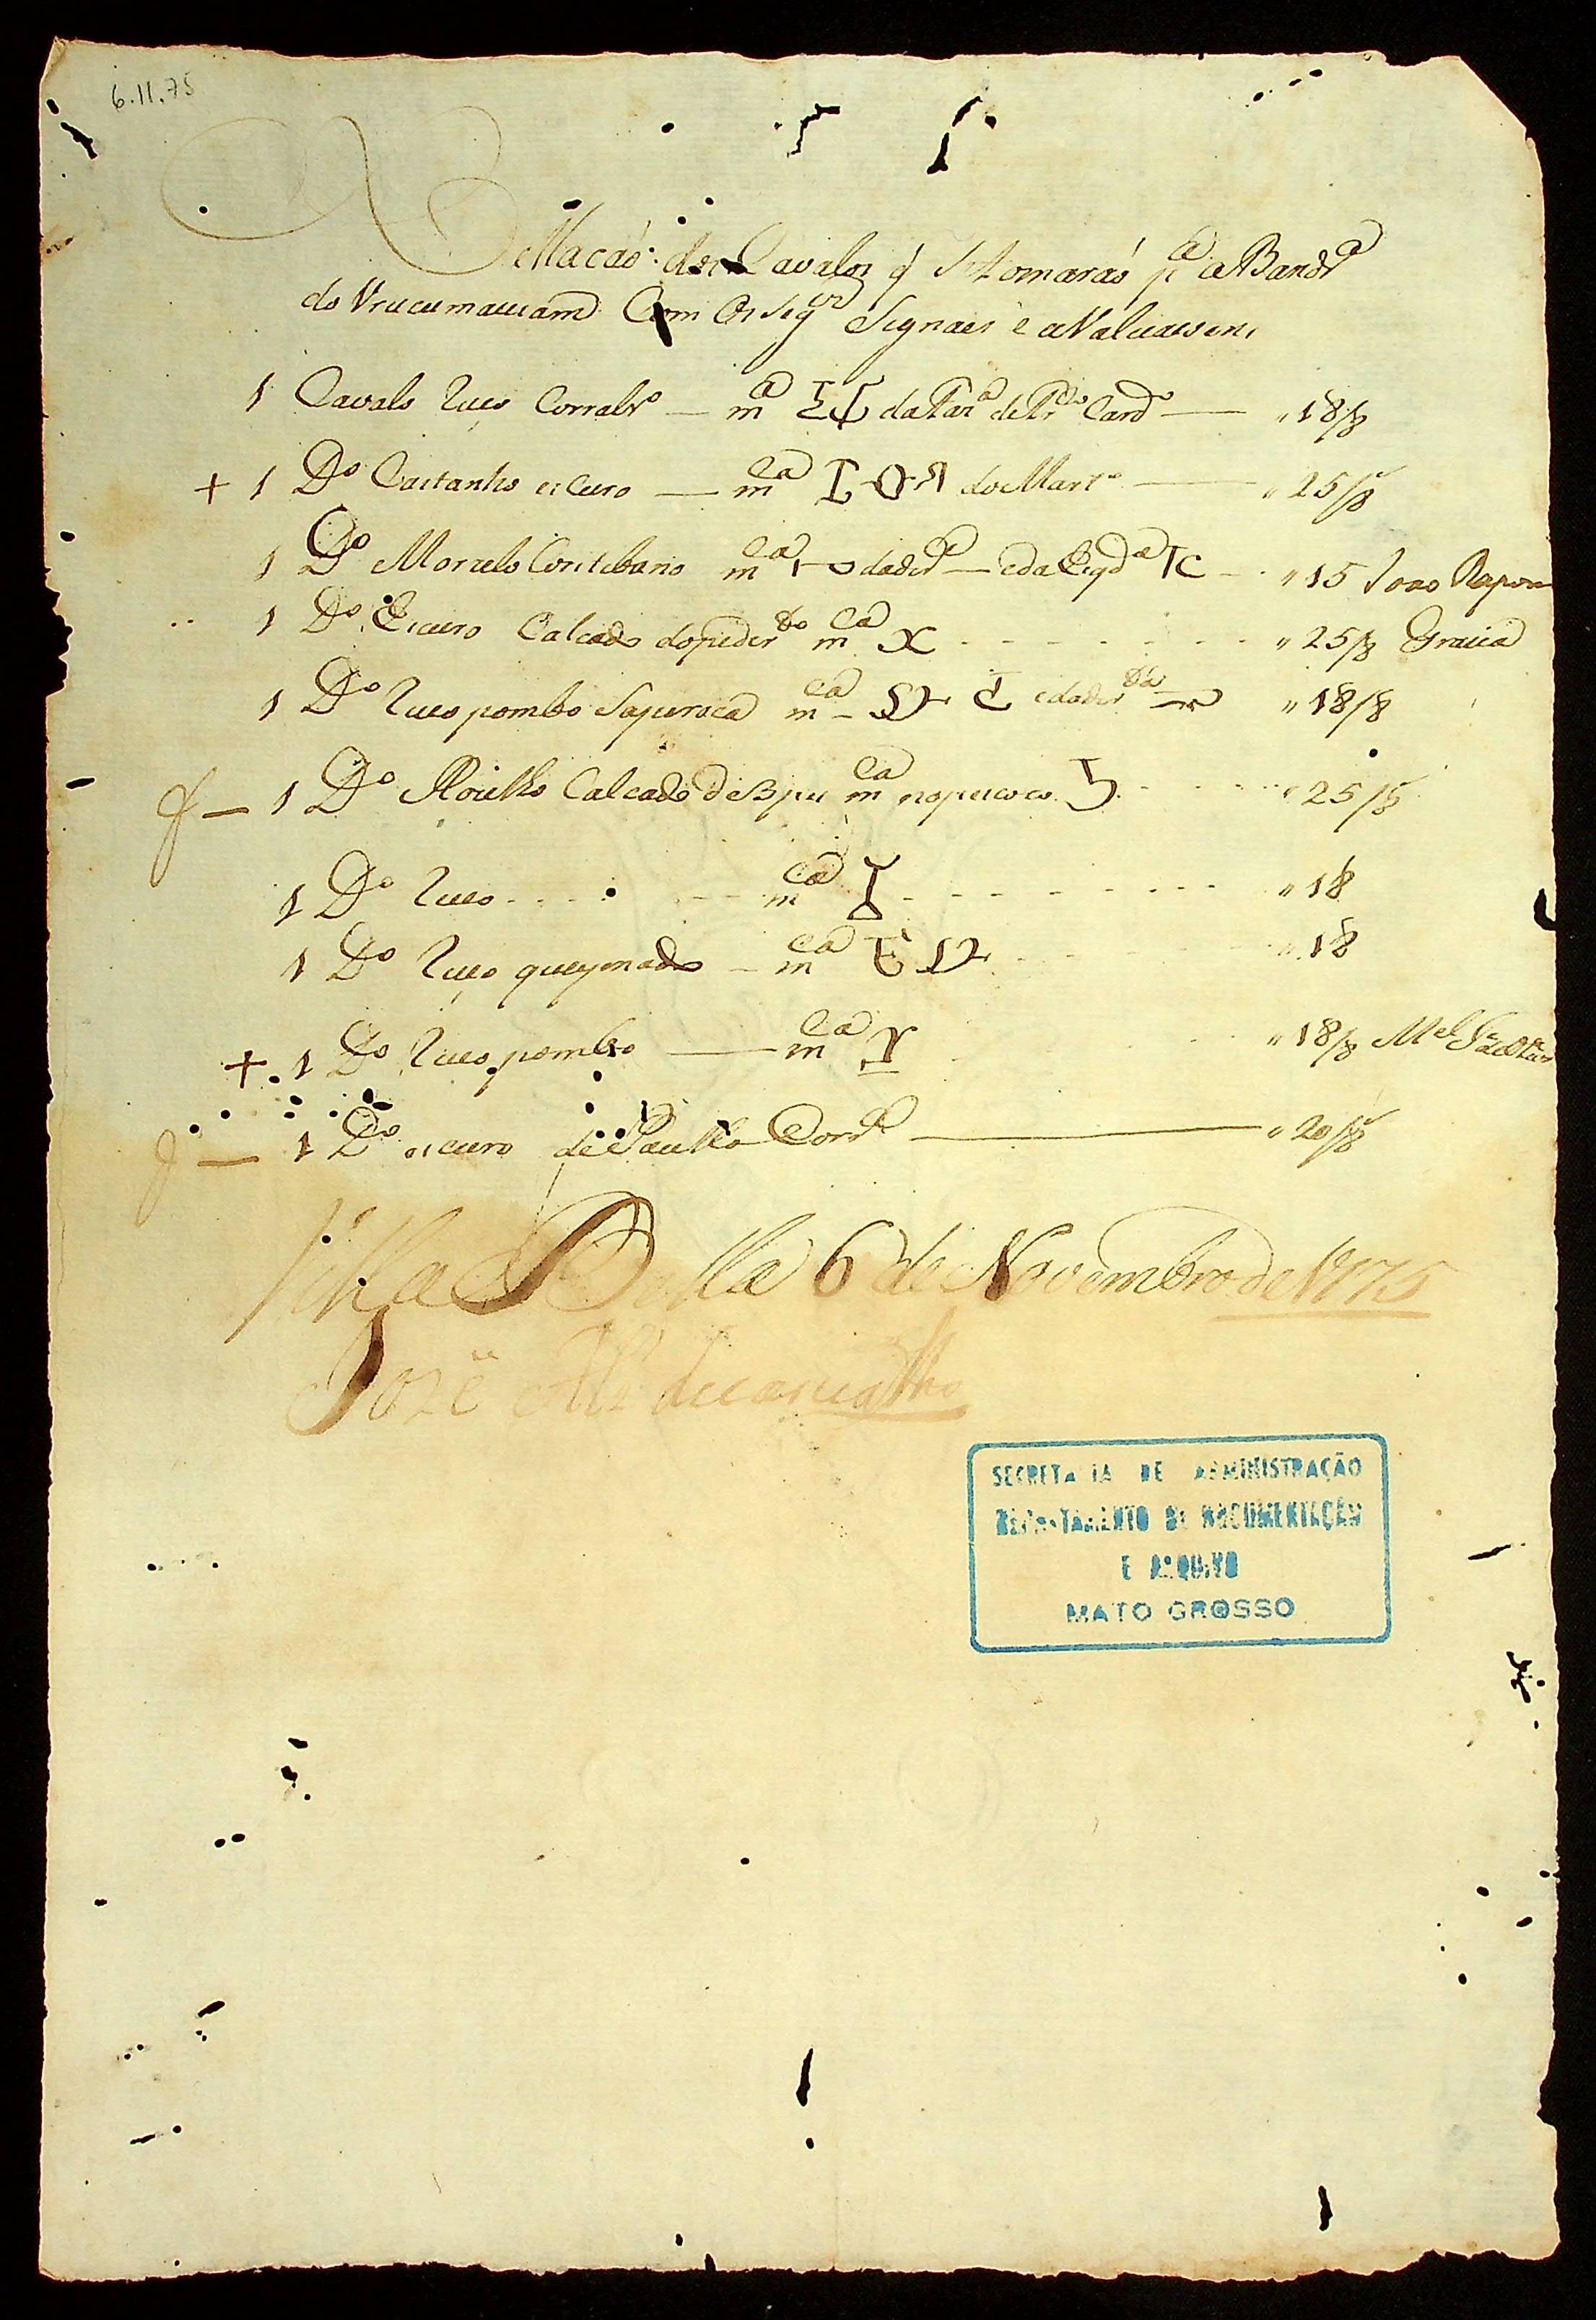 6.11.75
Rellacaó dos Cavalos q̃ Se tomaraó pª a Bandrª
do Vrucumacuam Com Os Seges Signaes e aValuasens
1 Cavalo ruço Corralrº — mca da Fazª de Cardº — " 18/8
+ 1 Dº Castanho escuro — mca do Marte — " 25/8
1 Dº Morzelo Coritibano mca da dirª — e da Esqdª TC — " 15 Joao Rapozo
1 Dº Escuro Calcado do pe dirto mca X - - - " 25/8 Gracia
1 Dº ruço pombo Sapiroca mca — e da dirta " 18/8
1 Dº Rosilho Calcado de 3 pes mca no pescoco 5 - - - " 25/8
1 Dº ruço - - - mca I - - - " 18
1 Dº ruço queymado — mca - - - " 18
+ 1 Dº ruço pombo — mca - - - " 18/8 Mel
1 Dº escuro de Paullo Cordº — " 20/8
Villa Bella 6 de Novembro de 1775
Jozé Alz de carvalho
SECRETARIA DE ADMINISTRAÇÃO
DEPARTAMENTO DE DOCUMENTAÇÃO
E ARQUIVO
MATO GROSSO